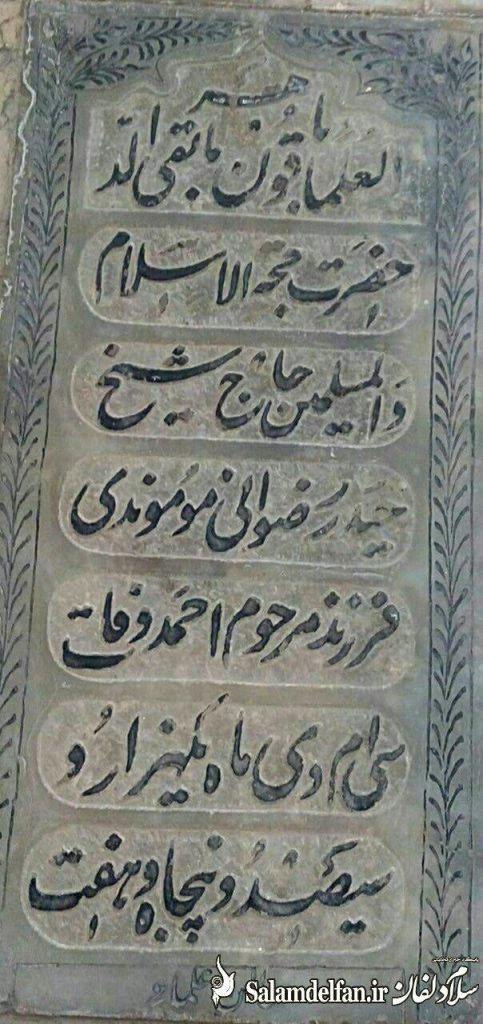 العُلَماءُ باقُونَ ما بَقِیَ الدَّهر
حضرت حجة الاسلام
والمسلمین حاج شیخ
حیدر رضوانی موموندی
فرزند مرحوم احمد وفات
سی ام دی ماه یکهزار و
سیصد و پنجاه و هفت
سلام دلفان Salamdelfan.ir